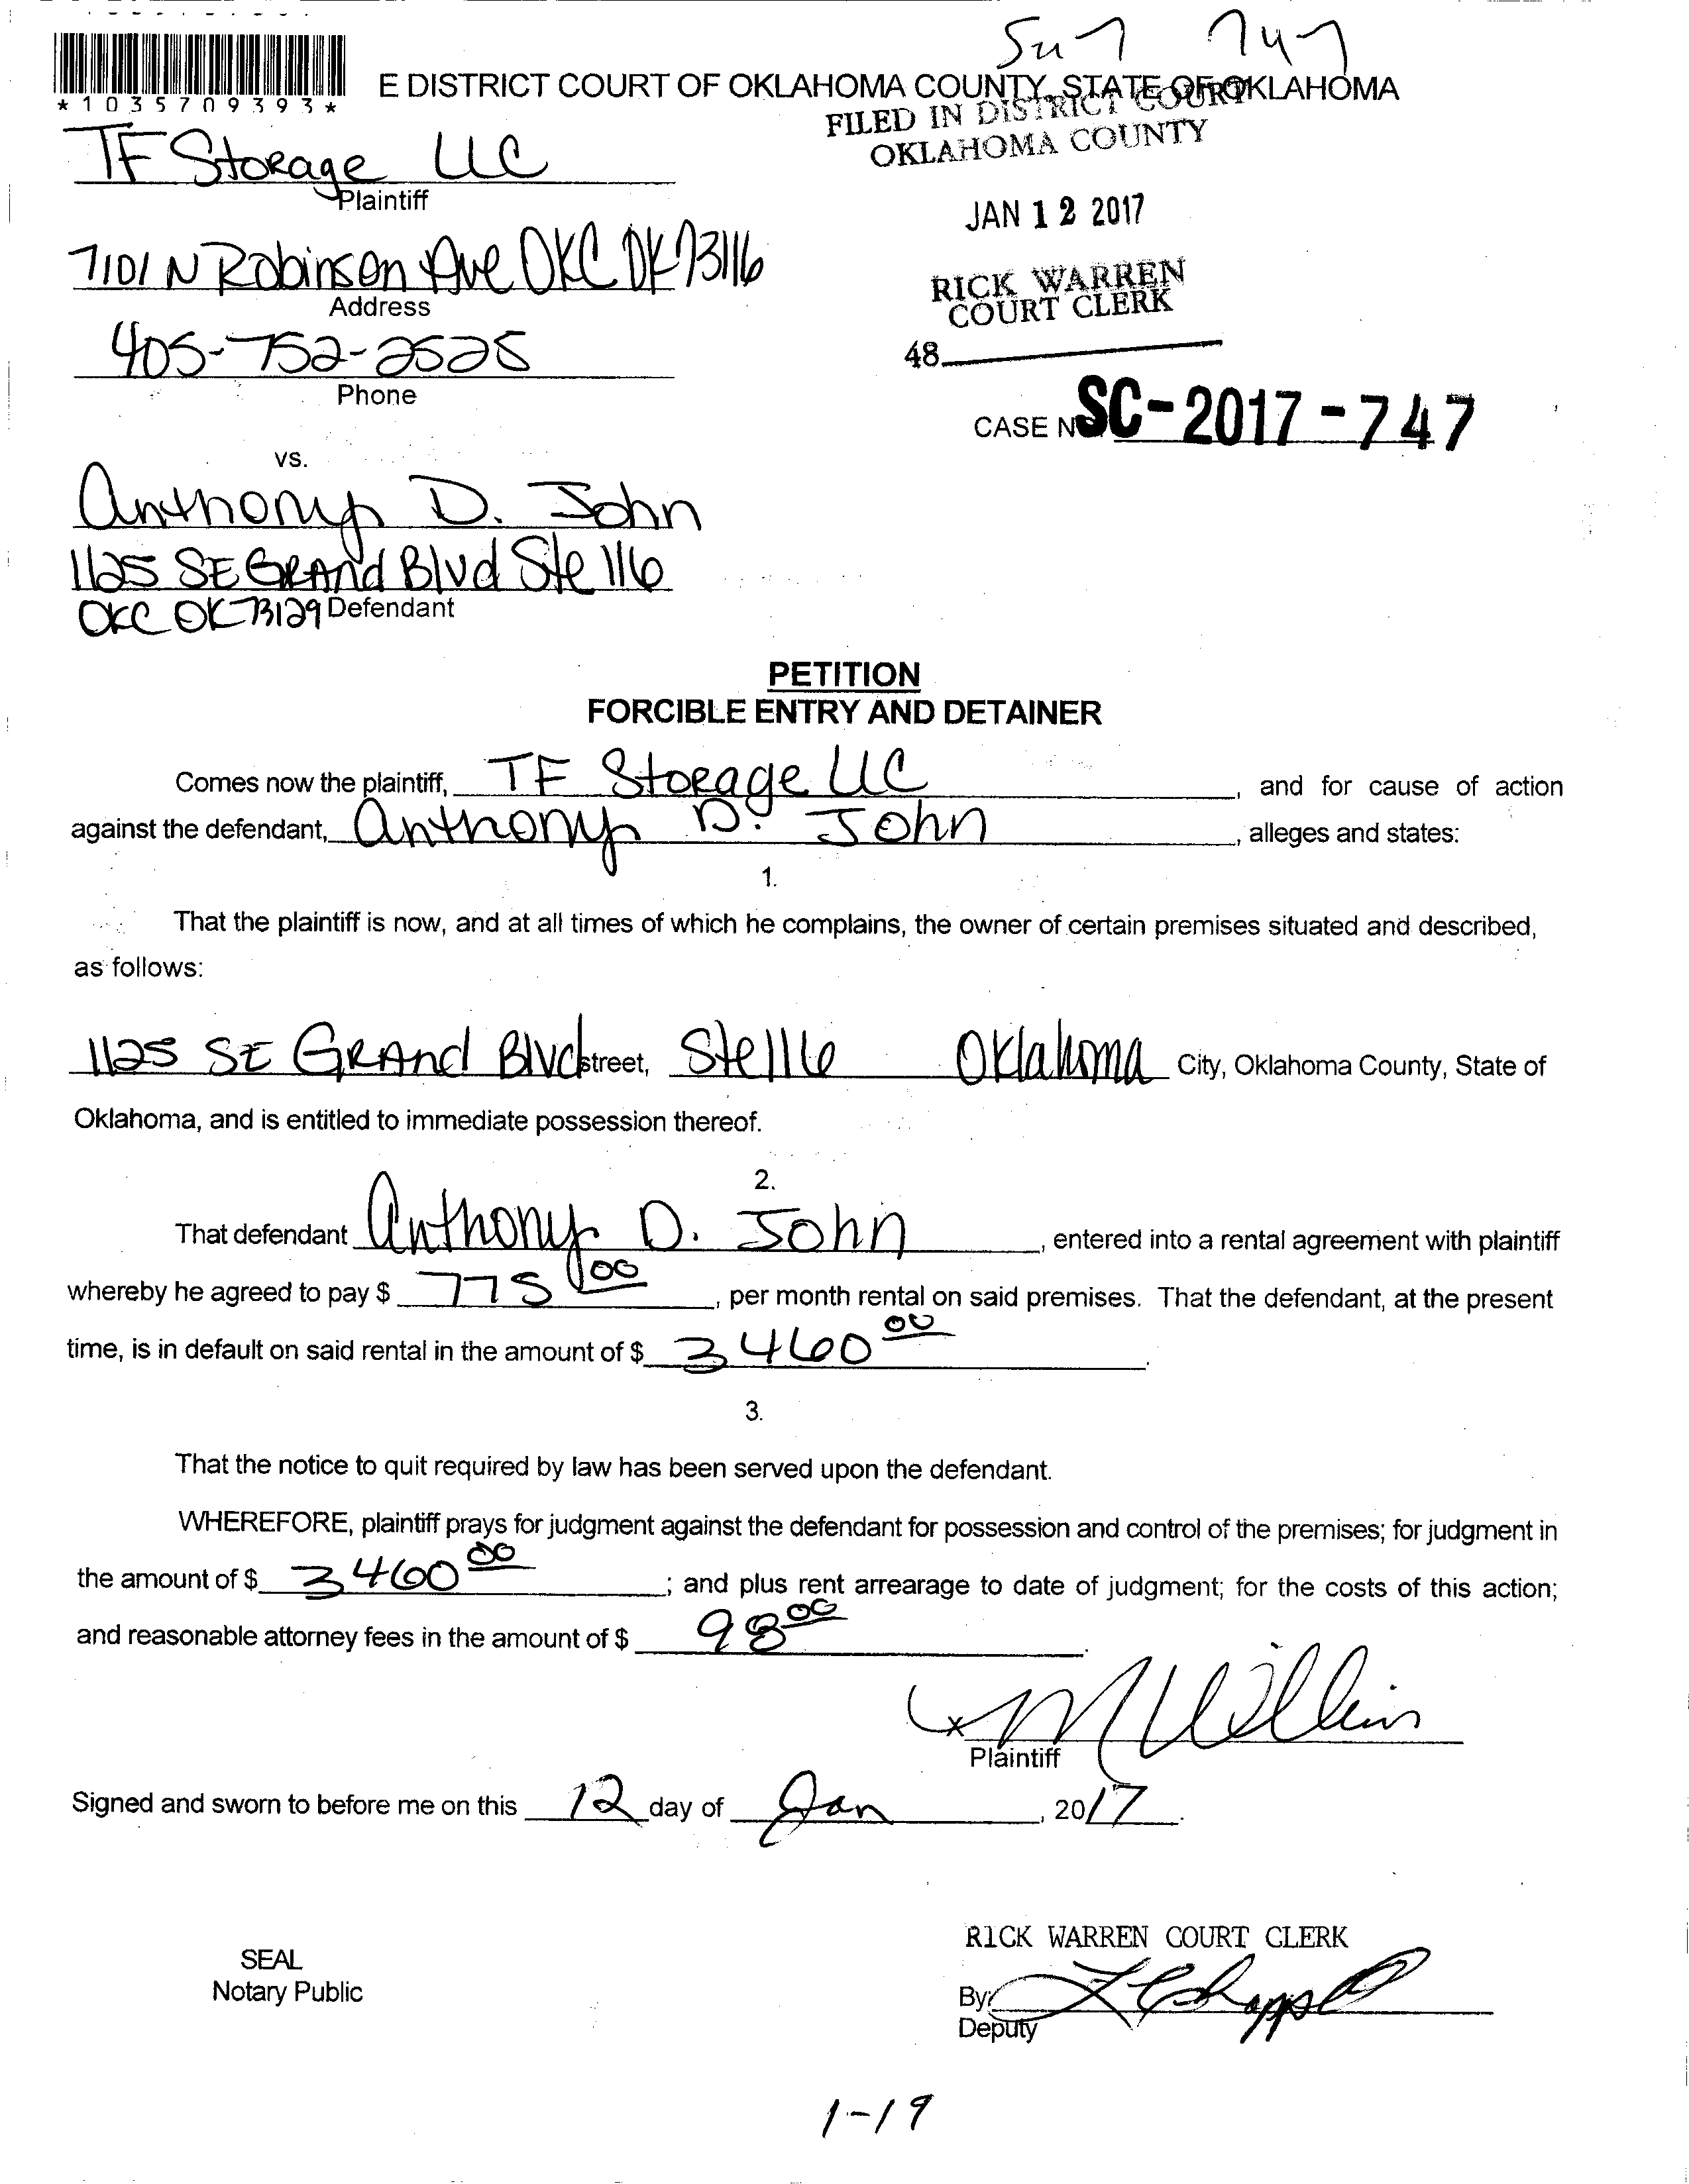 747
*1035709393*
E DISTRICT COURT OF OKLAHOMA COUNTY, STATE OF OKLAHOMA
FILED IN DISTRICT COURT
OKLAHOMA COUNTY
TF Storage LLC
Plaintiff
JAN 12 2017
7101 N Robinson Ave OKC OK 73116
Address
RICK WARREN
COURT CLERK
405-752-2525
Phone
48
CASE N SC-2017-747
vs.
Anthony D. John
1125 SE Grand Blvd Ste 116
OKC OK 73129 Defendant
PETITION
FORCIBLE ENTRY AND DETAINER
Comes now the plaintiff, TF Storage LLC, and for cause of action
against the defendant, Anthony D. John, alleges and states:
1.
That the plaintiff is now, and at all times of which he complains, the owner of certain premises situated and described,
as follows:
1125 SE Grand Blvd street, Ste 116 Oklahoma City, Oklahoma County, State of
Oklahoma, and is entitled to immediate possession thereof.
2.
That defendant Anthony D. John, entered into a rental agreement with plaintiff
whereby he agreed to pay $ 775 00, per month rental on said premises. That the defendant, at the present
time, is in default on said rental in the amount of $ 3460 00.
3.
That the notice to quit required by law has been served upon the defendant.
WHEREFORE, plaintiff prays for judgment against the defendant for possession and control of the premises; for judgment in
the amount of $ 3460 00; and plus rent arrearage to date of judgment; for the costs of this action;
and reasonable attorney fees in the amount of $ 98 00.
x
Plaintiff
Signed and sworn to before me on this 12 day of Jan, 2017.
RICK WARREN COURT CLERK
SEAL
Notary Public
By:
Deputy
1-19